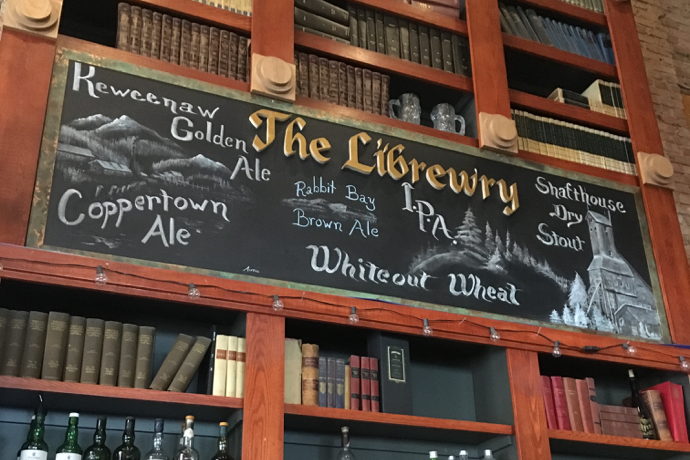 The Librewry
Keweenaw
Golden
Ale
Coppertown
Ale
Rabbit Bay
Brown Ale
I.P.A.
Whiteout Wheat
Shafthouse
Dry
Stout